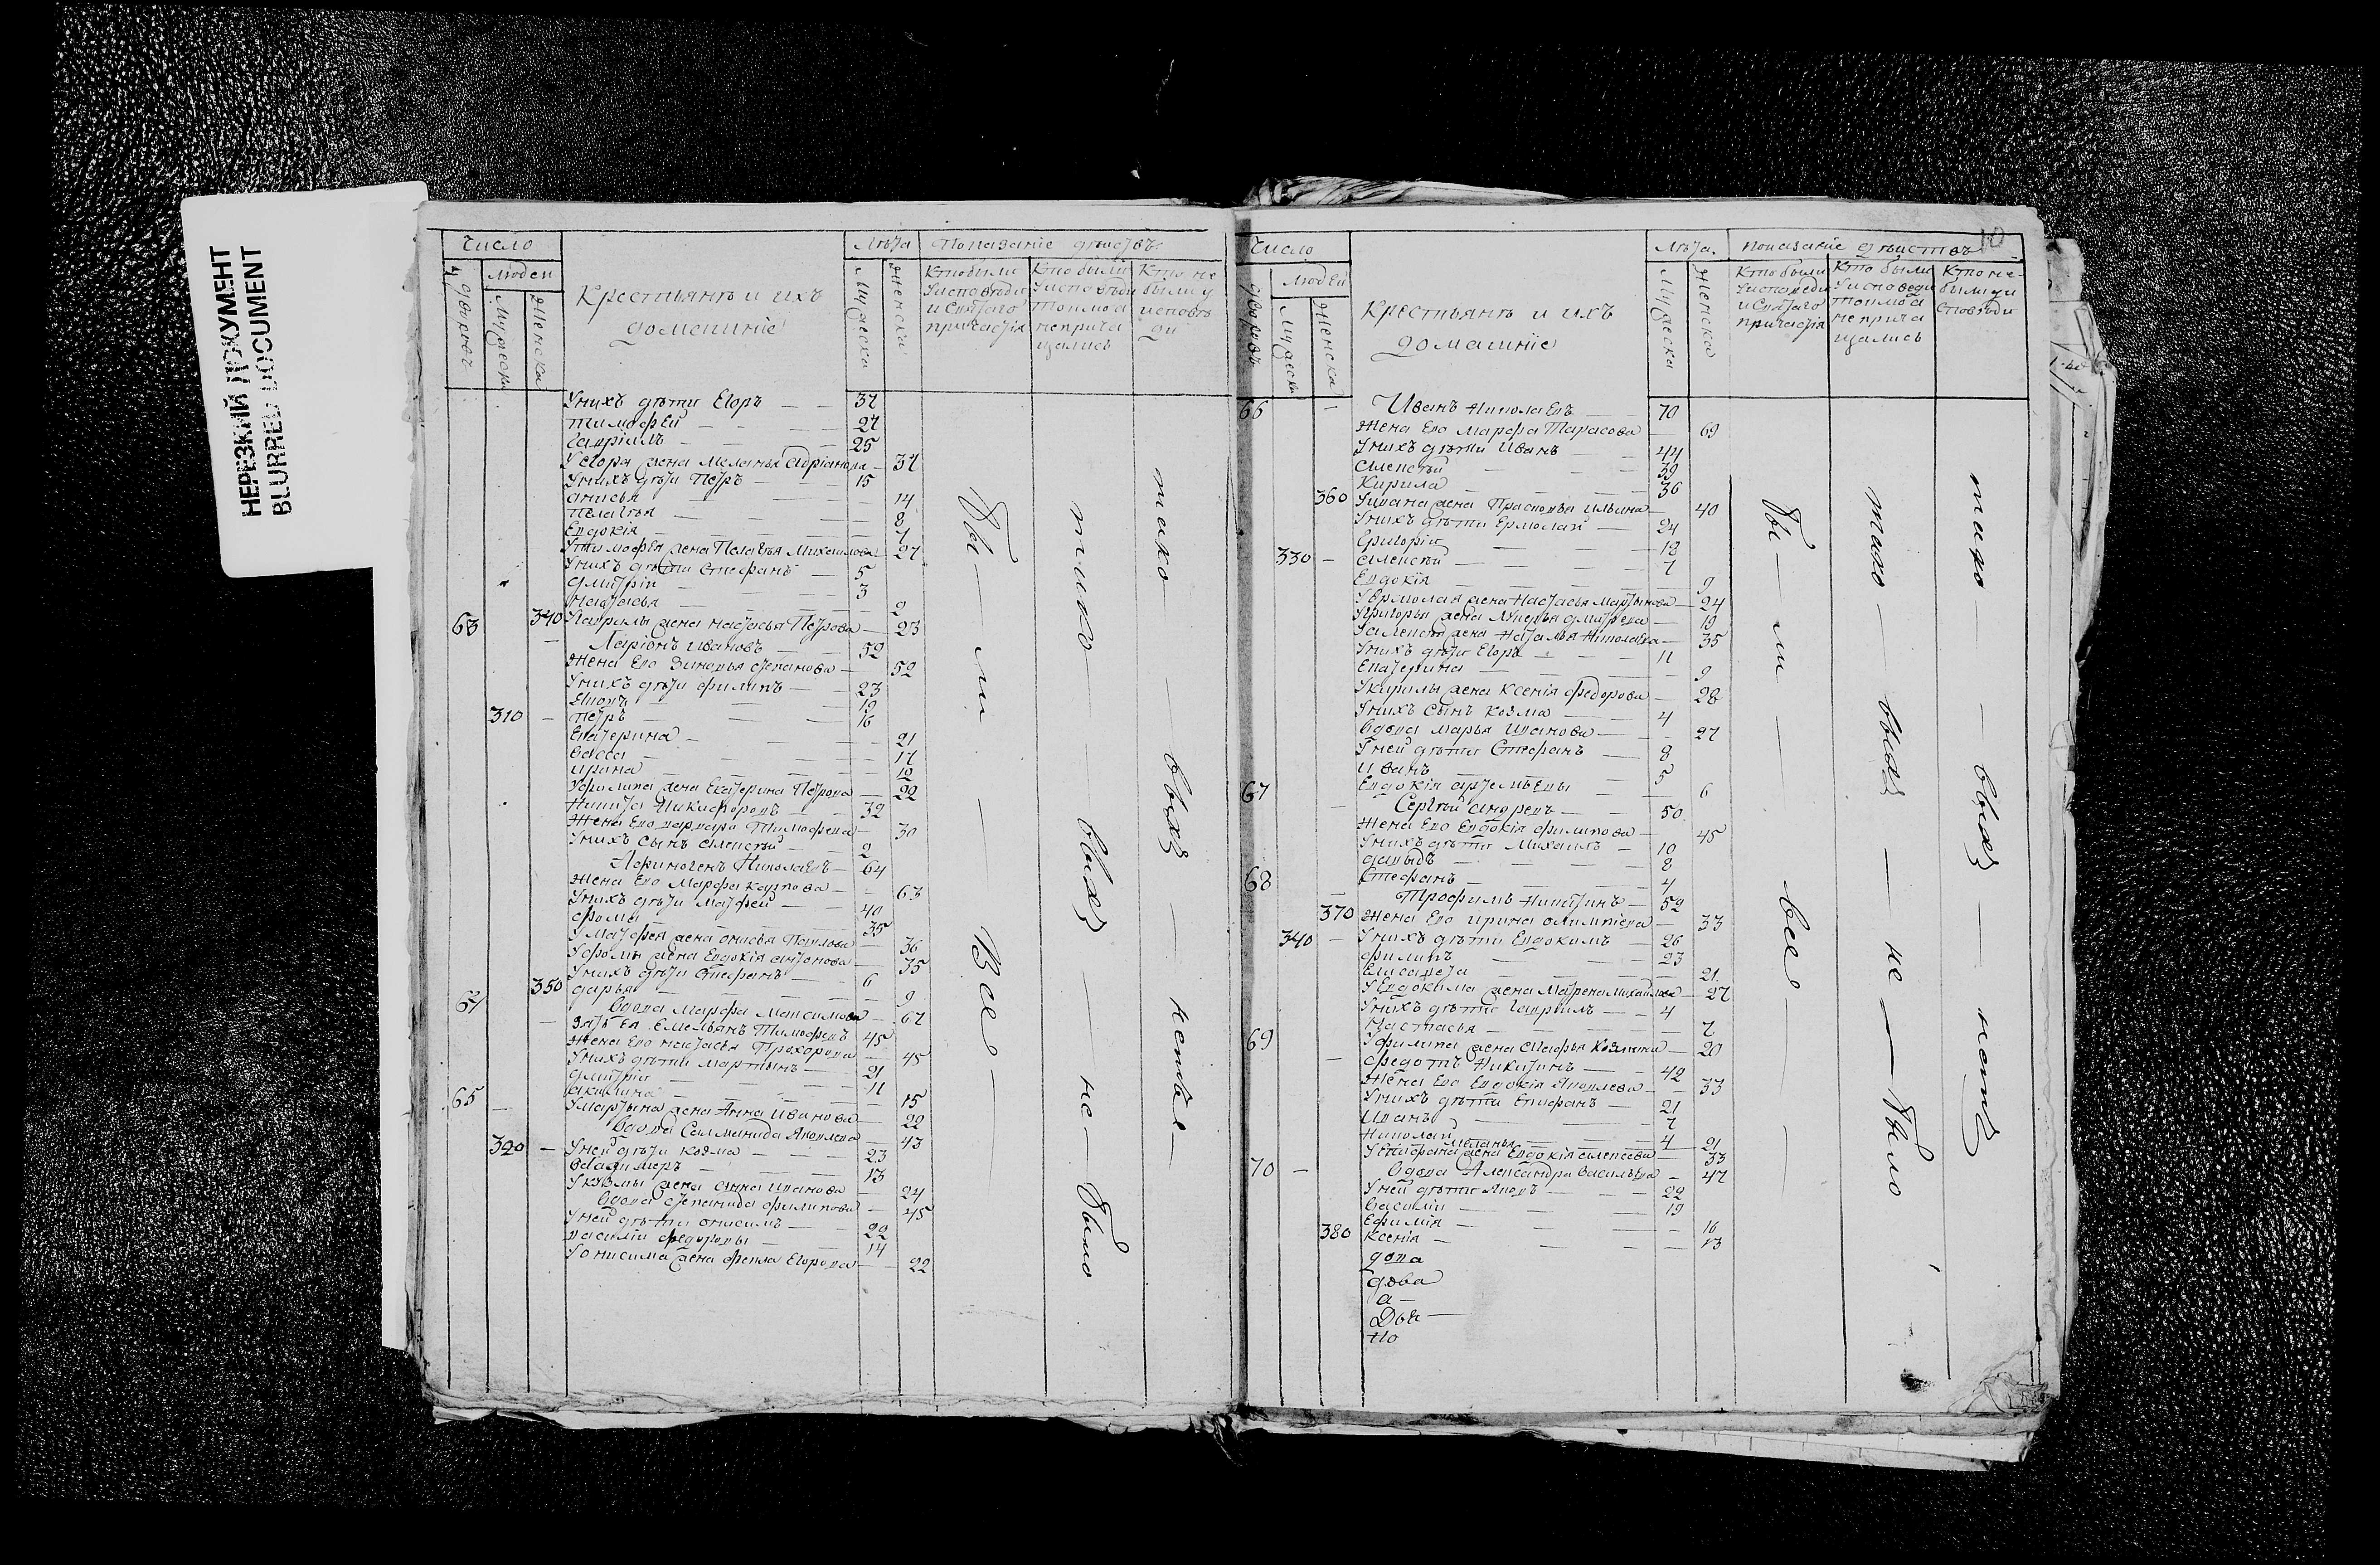 НЕРЕЗКИЙ ДОКУМЕНТ
BLURRED DOCUMENT
Число
Лѣта
Показаніе дѣйствъ
дворовъ
людей
Мужеска
Женска
Крестьянѣ и ихъ
домашніе
Мужеска
Женска
Кто были
у исповѣди
и Святаго
причастія
Кто были
у исповѣди
токмо а
не прича
щались
Кто не
были у
исповѣ
ди
У нихъ дѣти Егоръ — 37
тимофей — 27
Гавріилъ — 25
У Егора жена Меланья Адріанова — 37
У нихъ дѣти Петръ — 15
анисья — 14
Пелагѣя — 8
Евдокія — 4
У тимофея жена Пелагѣя Михаилова 27
У нихъ дѣти Стефанъ — 5
Дмитрій — 3
Настасья — 2
340 У Гаврилы жена Настасья Петрова — 23
63 — Ларіонъ Ивановъ — 52
Жена Его Зиновья степанова — 52
У нихъ дѣти филипъ — 23
— 19
310 — Петръ — 16
Екатерина — 21
Васса — 17
ирина — 12
У филипа жена Екатерина Петрова — 22
Никита Никифоровъ — 32
Жена Его варвара Тимофеева — 30
У нихъ сынъ алексѣй — 2
Афиногенъ Николаевъ — 64
Жена Его Марфа карпова — 63
У нихъ дѣти матфей — 40
фома — 35
У Матфея жена анисья Павлова — 36
У фомы жена Евдокія антонова — 35
У нихъ дѣти Стефанъ — 6
350 дарья — 9
64 Вдова Марфа Максимова — 67
— Зять Ея Емельянъ Тимофеевъ 45
Жена Его настасья Прохорова — 45
У нихъ дѣти Мартынъ — 21
Дмитрій — 11
акилина — 15
У мартына жена Анна Иванова — 22
65 — Вдова Саломанида Яковлева — 43
320 — У ней дѣти козма — 23
Владимеръ — 13
У козмы жена анна иванова — 24
Вдова степанида филипова — 45
У ней дѣти онисимъ — 22
василій федоровы — 14
У онисима жена фекла Егорова — 22
Бы — ли — Все —
тако — выхъ — не — было
тако — выхъ — нетъ —
10
Число
Лѣта.
показаніе дѣйствъ
дворовъ
людей
Мужеска
Женска
Крестьянѣ и ихъ
домашніе
Мужеска
Женска
Кто были
у исповеди
и Святаго
причастія
Кто были
у исповеди
токмо а
не прича
щались
Кто не-
были у и
споведи
66 — Иванъ Николаевъ — 70
Жена Его Марфа Тарасова — 69
У нихъ дѣти Иванъ — 44
алексѣй — 39
Кирила — 36
360 У ивана жена Прасковья ильина — 40
У нихъ дѣти Ермолай — 24
Григорій — 18
330 — алексѣй — 7
Евдокія — 9
У Ермолая жена Настасья Мартынова — 24
У Григорья жена Лукерья дмитрева — 19
У алексѣя жена Наталья Николаева — 35
У нихъ дѣти Егоръ — 11
Екатерина — 9
У кирилы жена Ксенія федорова — 28
У нихъ сынъ козма — 4
Вдова марья Иванова — 27
У ней дѣти Стефанъ — 8
иванъ — 5
Евдокія артемьевы — 6
67 — Сергѣй андревъ — 50
Жена Его Евдокія филипова — 45
У нихъ дѣти Михаилъ — 10
давыдъ — 8
Стефанъ — 4
68 — Трофимъ Никитинъ — 52
370 Жена Его ирина олимпіева — 33
340 — У нихъ дѣти Евдокимъ — 26
филипъ — 23
Елисавета — 21
У Евдокима жена Матрена Михайлова — 27
У нихъ дѣти Гавриилъ — 4
Настасья — 2
У филипа жена Марфа Козмина — 20
69 — федотъ Никитинъ — 42
Жена Его Евдокія Яковлева — 33
У нихъ дѣти Епифанъ — 21
Иванъ — 7
Николай — 4
Меланья — 21
У Епифана жена Евдокія алексеева — 33
70 — Вдова Александра Васильева — 47
У ней дѣти Яковъ — 22
Василій — 19
Ефимія — 16
380 Ксенія — 13
дова
дова
а —
Два —
но
Бы — ли — все —
тако — выхъ — не — было
тако — выхъ — нетъ